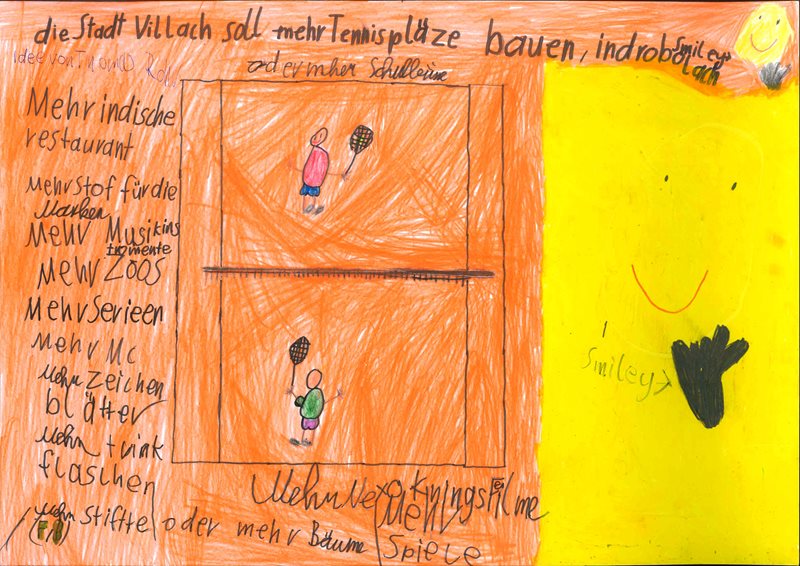 die Stadt Villach soll mehr Tennispläze bauen, indrobolach
Smiley>
Idee von
oder mher Schulleine
Mehr indische
restaurant
Mehr Stof für die
Marken
Mehr Musikins
trumente
Mehr Zoos
Mehr Serieen
Mehr Mc
Mehr Zeichen
blätter
Mehr trink
flaschen
Mehr Stiftte oder mehr Bäume
Mehr
Mehr
Spiele
Smiley>